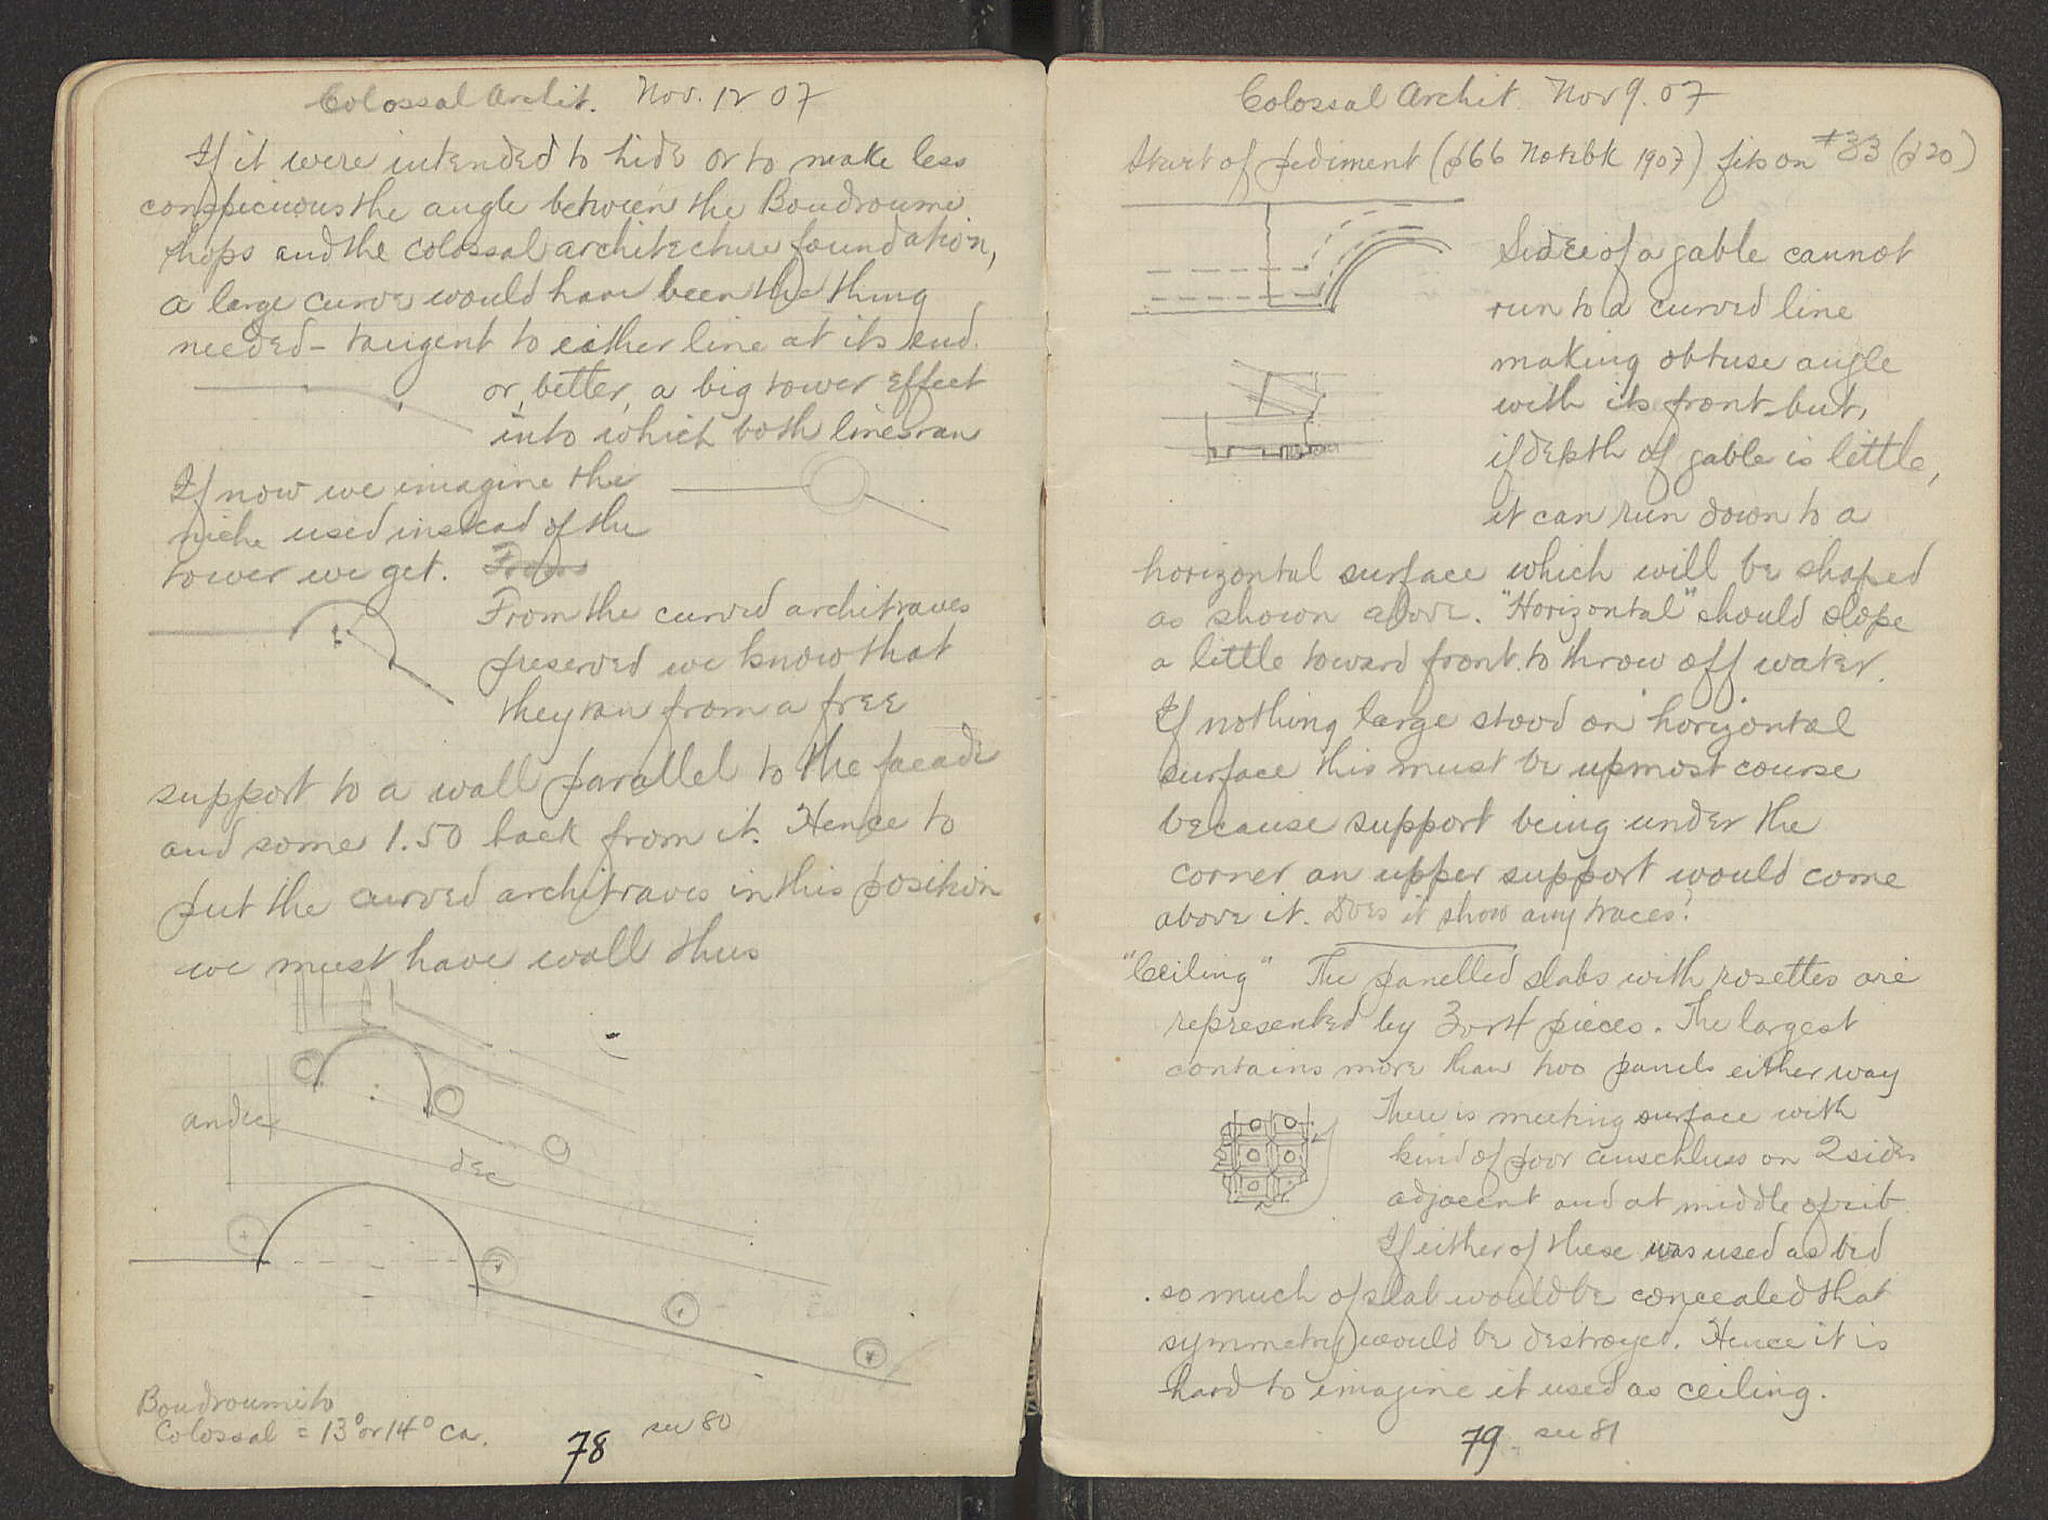 Colossal Archit. Nov. 12 07
If it were intended to hide or to make less
conspicuous the angle between the Boudroumi
shops and the colossal architecture foundation,
a large curve would have been the thing
needed - tangent to either line at its end.
or, better, a big tower effect
into which both lines ran
If now we imagine the
niche used instead of the
tower we get.
From the curved architraves
preserved we know that
they ran from a free
support to a wall parallel to the facade
and some 1.50 back from it. Hence to
put the curved architraves in this position
we must have wall thus
andec
dec
Boudroumi to
Colossal = 13° or 14° ca.
78 see 80
Colossal Archit. Nov 9. 07
Start of pediment (p66 Notebk 1907) fits on #33 (p20)
Side of a gable cannot
run to a curved line
making obtuse angle
with its front but,
if depth of gable is little,
it can run down to a
horizontal surface which will be shaped
as shown above. "Horizontal" should slope
a little toward front to throw off water.
If nothing large stood on "horizontal
surface this must be upmost course
because support being under the
corner an upper support would come
above it. Does it show any traces?
"Ceiling" The panelled slabs with rosettes are
represented by 3 or 4 pieces. The largest
contains more than two panels either way
There is meeting surface with
kind of poor anschluss on 2 sides
adjacent and at middle of rib.
If either of these was used as bed
so much of slab would be concealed that
symmetry would be destroyed. Hence it is
hard to imagine it used as ceiling.
79 see 81